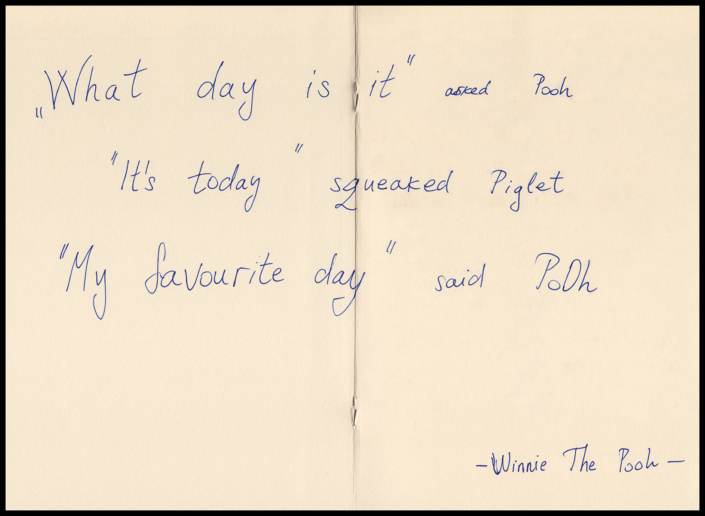 „What day is it" asked Pooh
"It's today" squeaked Piglet
"My favourite day" said PoOh
- Winnie The Pooh -